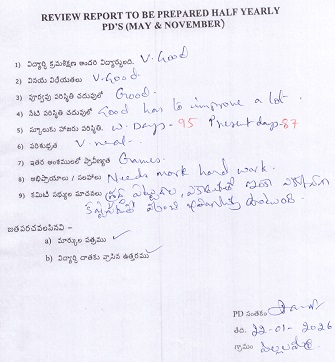 REVIEW REPORT TO BE PREPARED HALF YEARLY
PD'S (MAY & NOVEMBER)
1) విద్యార్థి క్రమశిక్షణ అందరి విద్యార్థులది. V. Good
2) వినయ విధేయతలు V. Good.
3) పూర్వపు పరిస్థితి చదువులో Good.
4) నేటి పరిస్థితి చదువులో Good has to improve a lot.
5) స్కూలుకు హాజరు పరిస్థితి. W. Days - 95 Present days - 87
6) పరిశుభ్రత V. neat.
7) ఇతర అంశములలో ప్రావీణ్యత Games.
8) అభిప్రాయాలు / సలహాలు Needs hard work.
9) కమిటీ సభ్యుల సూచనలు
జతపరచవలసినవి -
a) మార్కుల పత్రము ✓
b) విద్యార్థి దాతకు వ్రాసిన ఉత్తరము ✓
PD సంతకం
తేది. 22-01-2026
గ్రామం